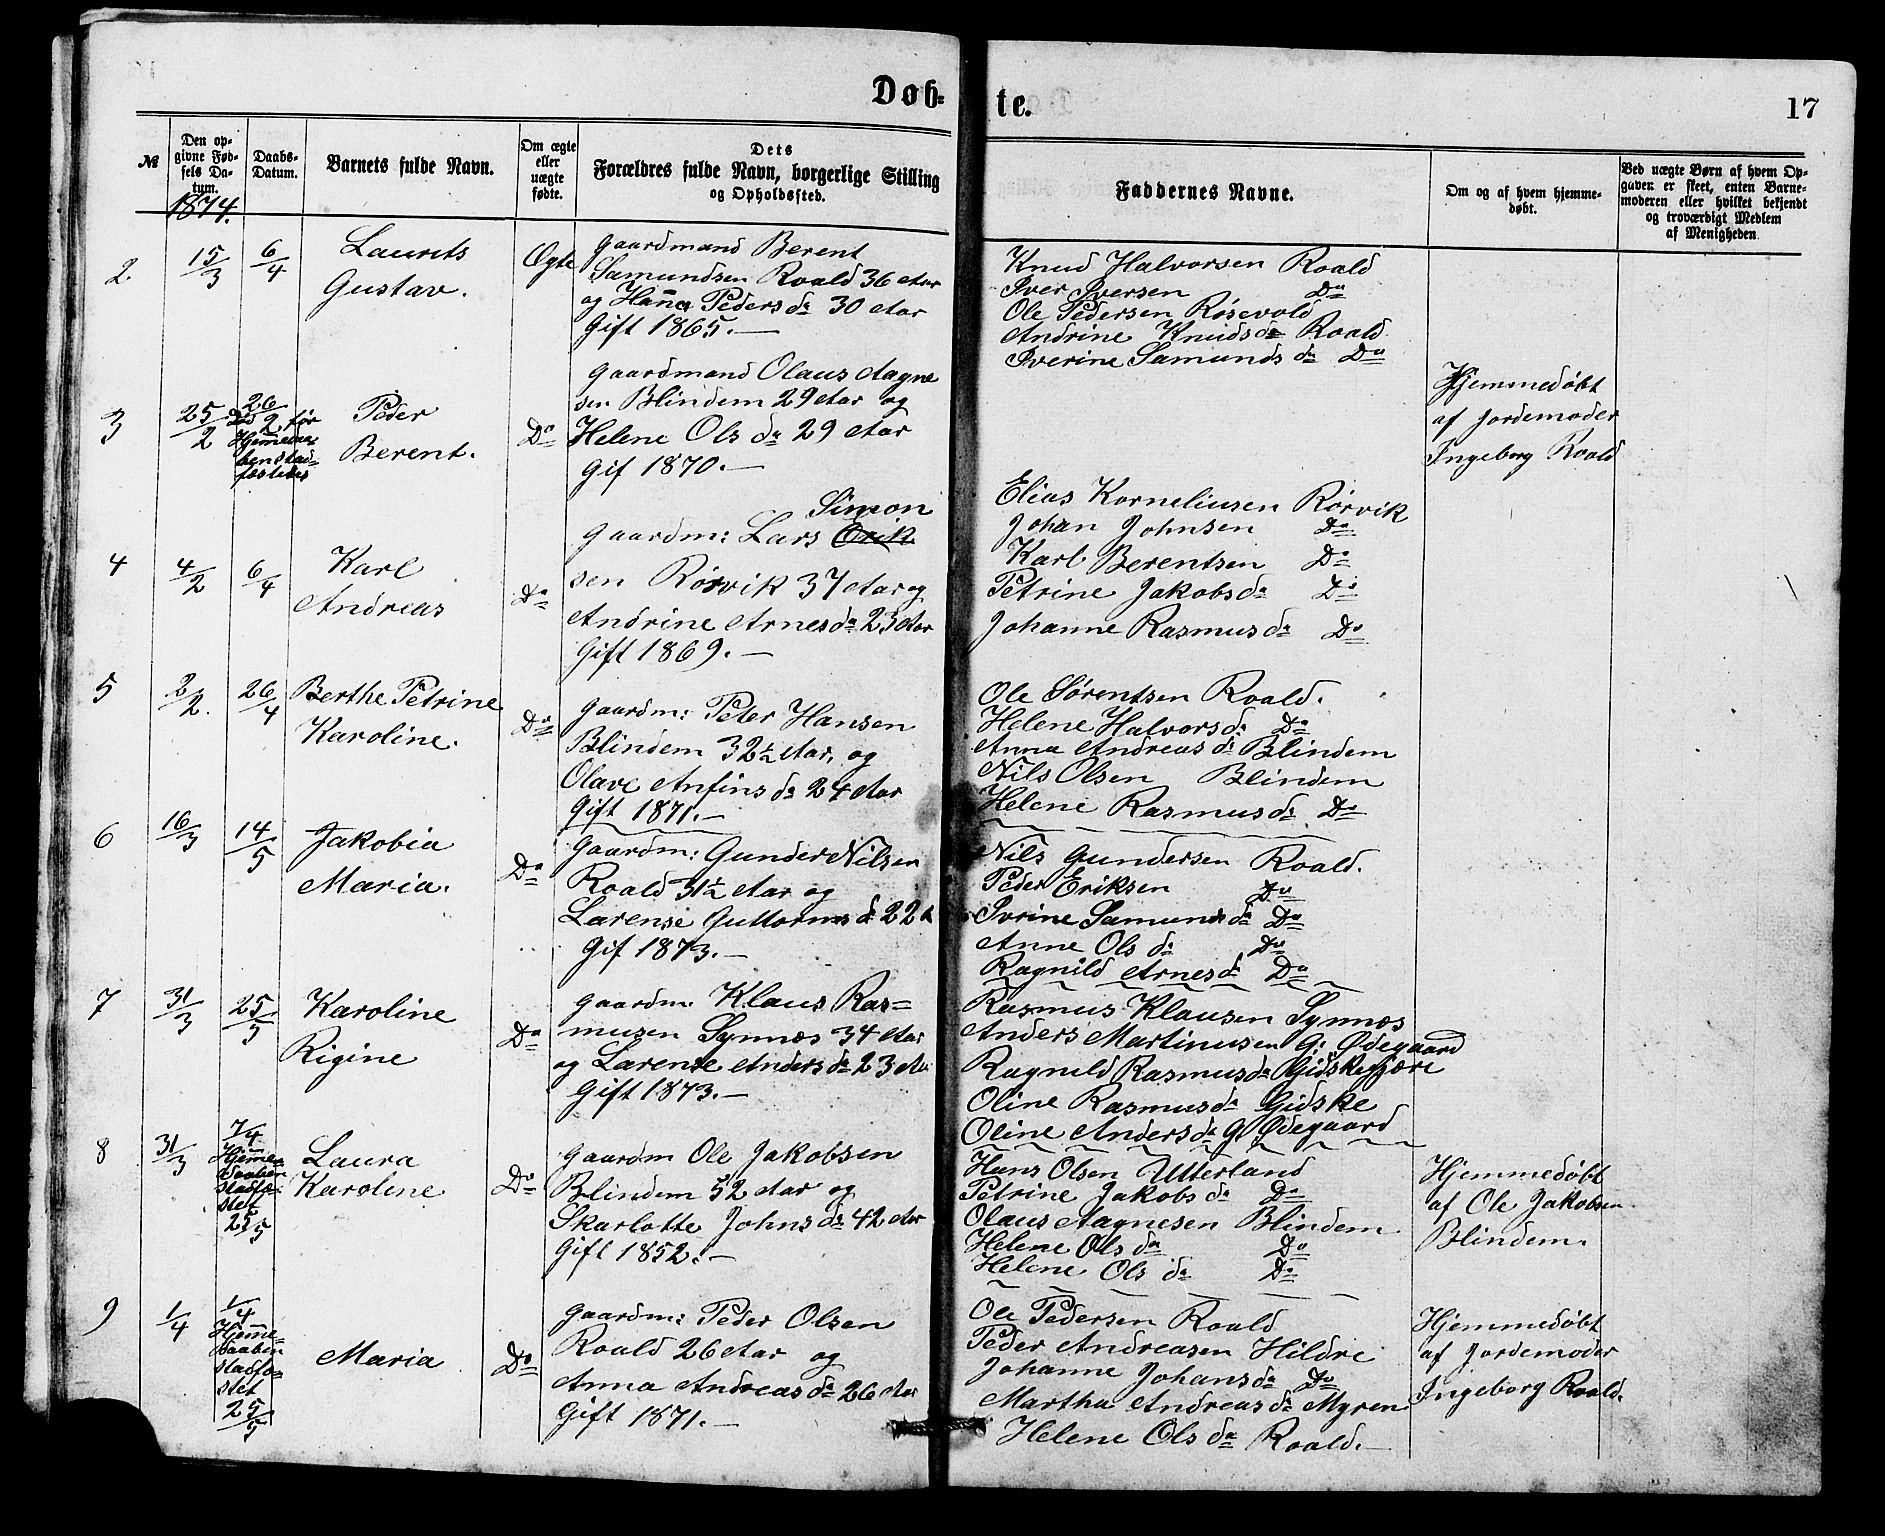 Døb=
te.
17
№
Den op-
givne Fød-
sels Da-
tum.
1874.
Daabs-
Datum.
Barnets fulde Navn.
Om ægte
eller
uægte
fødte.
Dets
Forældres fulde Navn, borgerlige Stilling
og Opholdssted.
Faddernes Navne.
Om og af hvem hjemme-
døbt.
Ved uægte Børn af hvem Op-
gaven er skeet, enten Barne-
moderen eller hvilket bekjendt
og troværdigt Medlem
af Menigheden.
2.
15/3
6/4
Laurits
Gustav.
Ægte
Gaardmand Berent
Samundsen Roald 36 Aar
og Hanna Pedersda 30 Aar
Gift 1865.—
Knud Halvorsen Roald
Iver Iversen Do
Ole Pedersen Røsevold
Andrine Knudsda Roald
Iverine Samundsda Do
3
25/2
26/2
Død før
Hjemedaa-
ben stad-
fæstedes
Peder
Berent.
Do
Gaardmand Olaus Aagne
sen Blindem 29 Aar og
Helene Olsda 29 Aar
Gif 1870.—
Hjemmedøbt
af Jordemoder
Ingeborg Roald
4
4/2
6/4
Karl
Andreas
Do
Simon
Gaardm: Lars Erik
sen Rørvik 37 Aar og
Andrine Arnesda 23 Aar
Gift 1869.—
Elias Korneliusen Rørvik
Johan Johnsen Do
Karl Berentsen Do
Petrine Jakobsda Do
Johanne Rasmusda Do
5
2/2.
26/4
Berthe Petrine
Karoline.
Do
Gaardm: Peter Hansen
Blindem 32½ Aar, og
Olave Anfinsda 24 Aar
Gift 1871.—
Ole Sørentsen Roald.
Helene Halvorsda Do
Anna Andreasda Blindem
Nils Olsen Blindem
Helene Rasmusda Do
6
16/3
14/5
Jakobia
Maria.
Do
Gaardm: Gunder Nilsen
Roald 31½ Aar og
Larense Guttormsda 22 A
Gif 1873.—
Nils Gundersen Roald.
Peder Eriksen Do
Ivrine Samundsda Do
Anne Olsda Do
Ragnild Arnesda Do
7
31/3
25/5
Karoline
Rigine
Do
Gaardm. Klaus Ras=
musen Synnæs 34 Aar
og Larense Andersda 23 Aa
Gift 1873.—
Rasmus Klausen Synnæs
Anders Martinusen G: Ødegaard
Ragnild Rasmusda Gidskegjære
Oline Rasmusda Gidske
Oline Andersda G. Ødegaard
8
31/3
7/4
Hjeme-
daaben
stadfæ-
stet
25/5
Laura
Karoline
Do
Gaardm Ole Jakobsen
Blindem 52 Aar og
Skarlotte Johnsda 42 Aar
Gift 1852.—
Hans Olsen Utterland
Petrine Jakobsda Do
Olaus Aagnesen Blindem
Helene Olsda Do
Helene Olsda Do
Hjemmedøbt
af Ole Jakobsen
Blindem.
9
1/4
1/4
Hjeme-
daaben
stadfæ-
stet
25/5
Maria
Do
Gaardm: Peder Olsen
Roald 26 Aar og
Anna Andreasda 26 Aar
Gift 1871.—
Ole Pedersen Roald
Peder Andreasen Hildre
Johanne Johansda Do
Martha Andreasda Myren
Helene Olsda Roald.—
Hjemmedøbt
af Jordemoder
Ingeborg Roald.